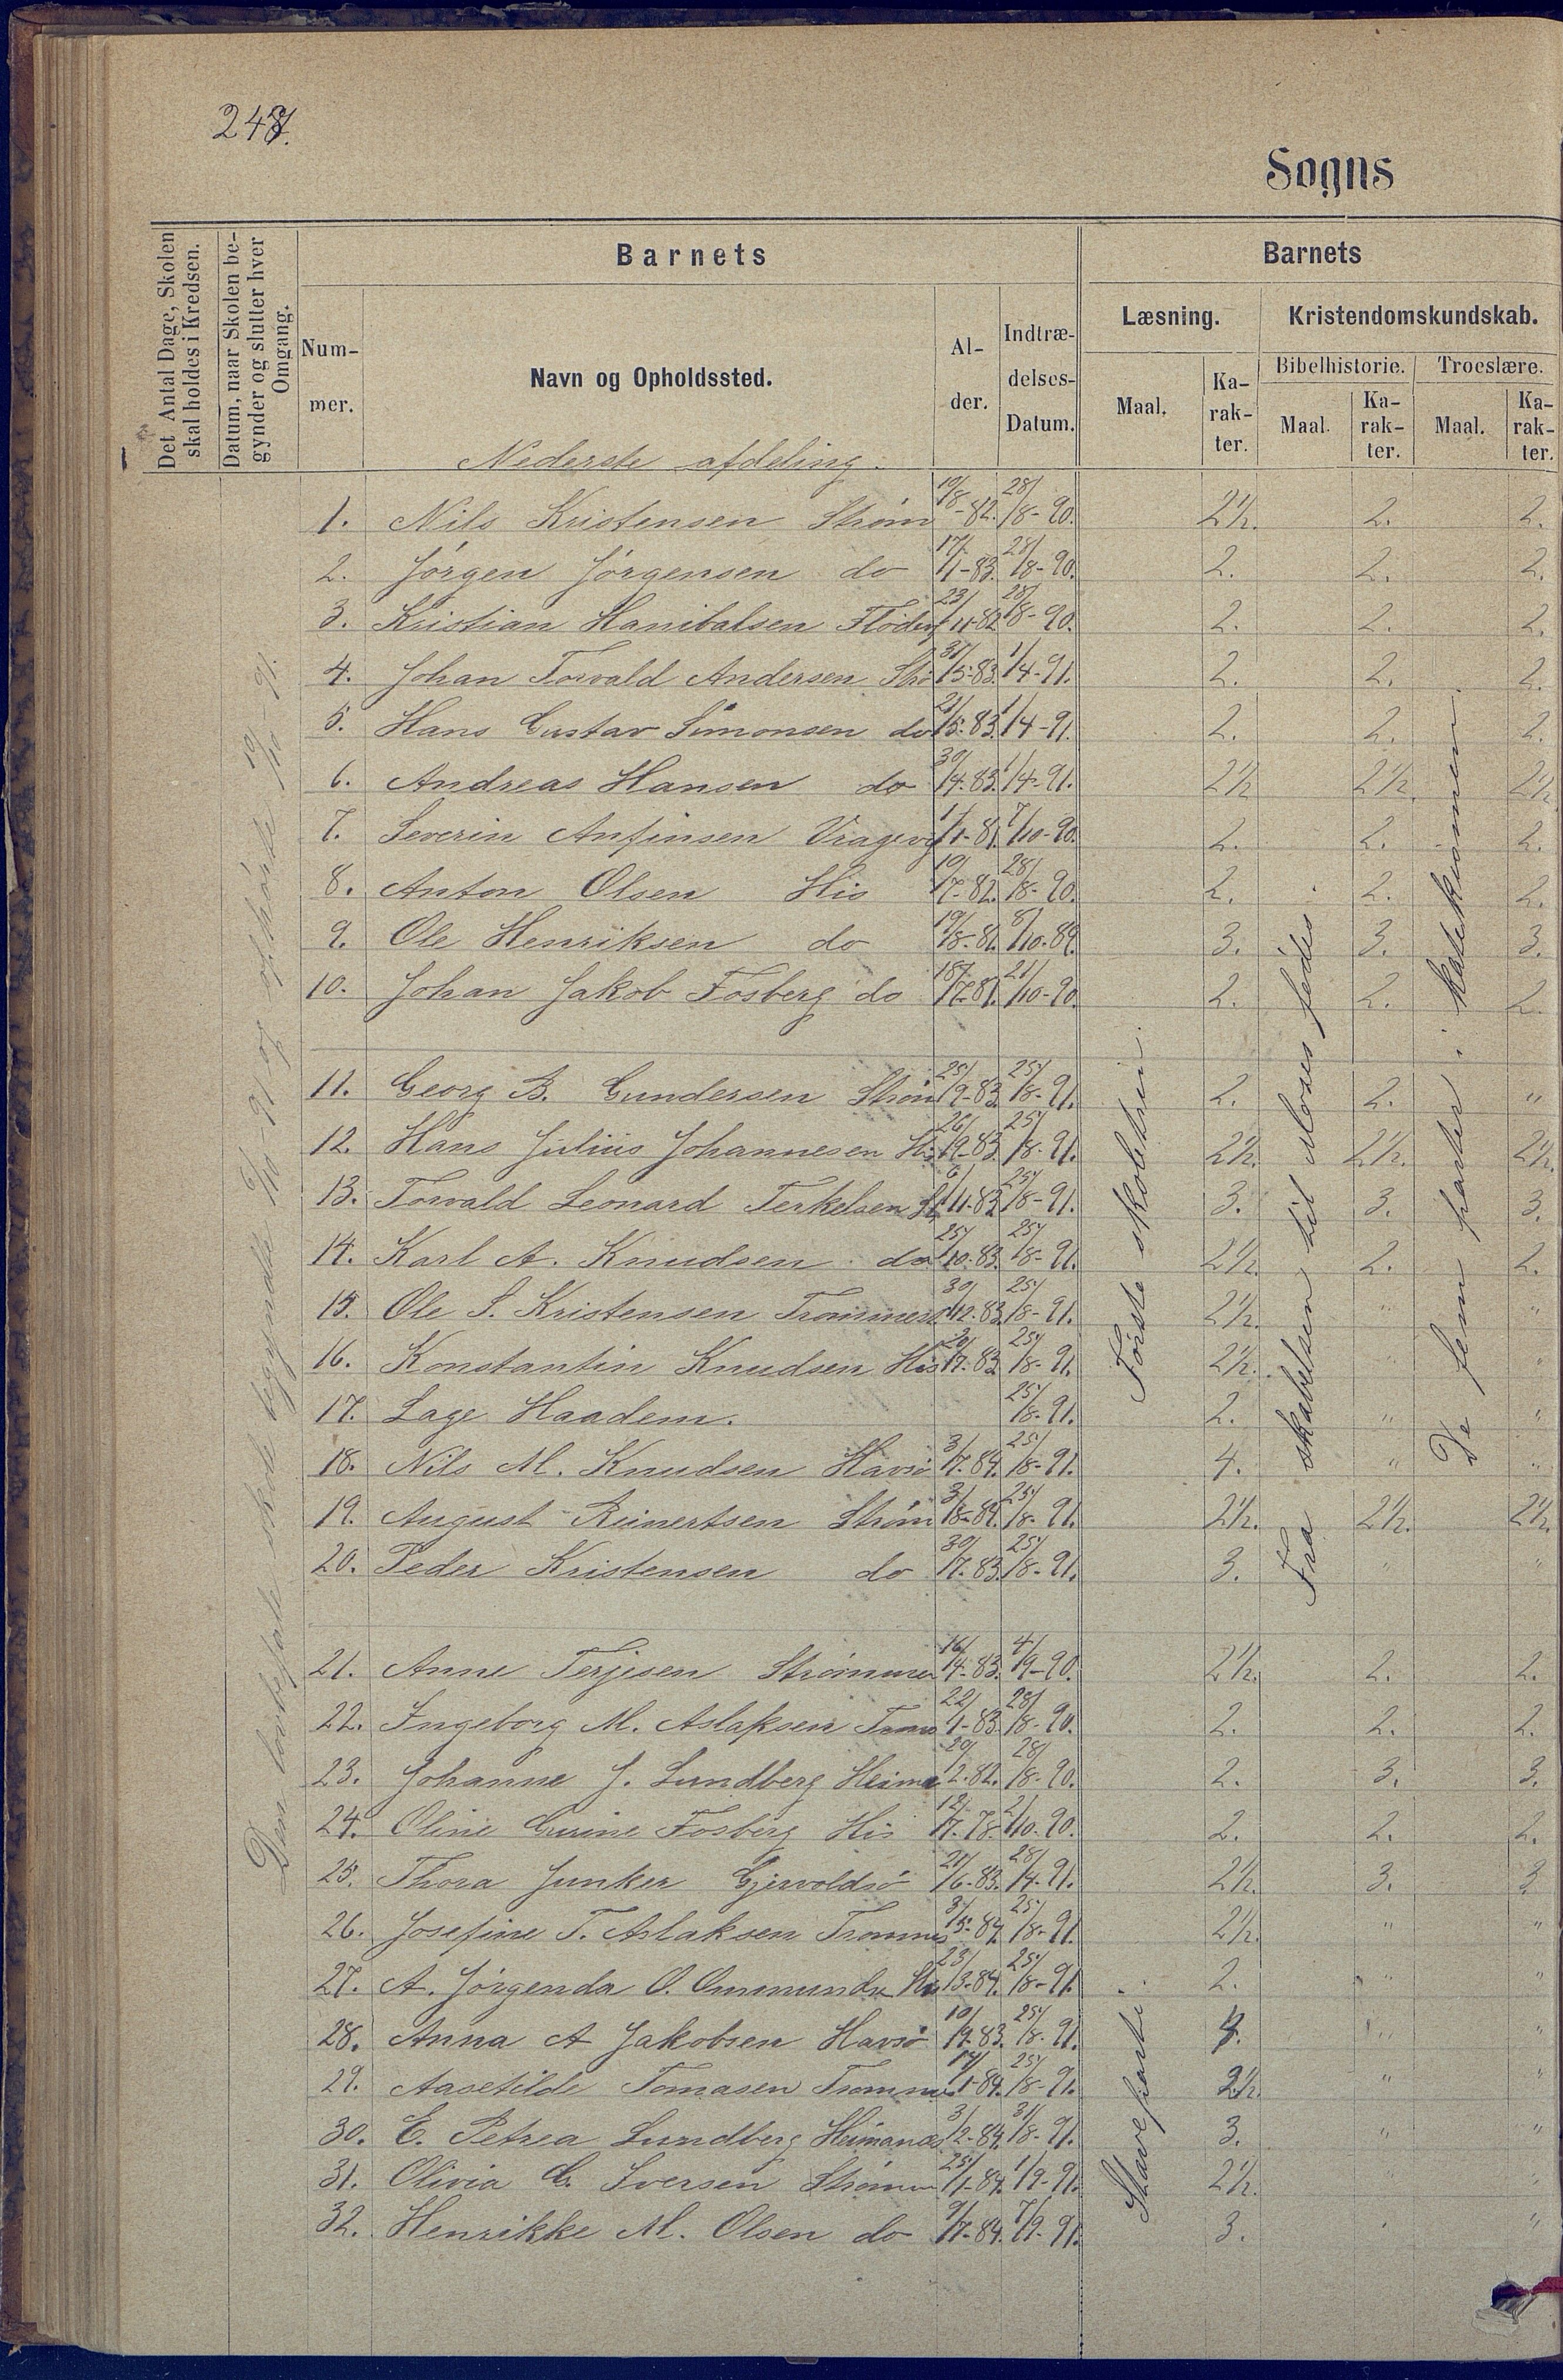 247.
Sogns
Det Antal Dage, Skolen
skal holdes i Kredsen.
Datum, naar Skolen be-
gynder og slutter hver
Omgang.
Barnets
Num-
mer.
Navn og Opholdssted.
Al-
der.
Indtræ-
delses-
Datum.
Barnets
Læsning.
Maal.
Ka-
rak-
ter.
Kristendomskundskab.
Bibelhistorie.
Maal.
Ka-
rak-
ter.
Troeslære.
Maal.
Ka-
rak-
ter.
Nederste afdeling.
Den lovbefalte skole begyndte /10-91 og ophørte 19/10-91.
Første skoletrin.
Staveparti
Fra skabelsen til Moses fødes
De fem parter i katekismen.
1. Nils Kristensen Strøm 19/8-82. 28/8-90. 2½. 2. 2.
2. Jørgen Jørgensen do 17/1-83. 28/8-90. 2. 2. 2.
3. Kristian Hanibalsen 23/11-82 28/8-90. 2. 2. 2.
4. Johan Torvald Andersen Strø 31/5-83. 1/4-91. 2. 2. 2.
5. Hans Gustav Simonsen do 21/5-83. 1/4-91. 2. 2. 2.
6. Andreas Hansen do 30/4-83. 1/4-91. 2½ 2½. 2½
7. Severin Anfinsen 1/1-81. 7/10-90. 2. 2. 2.
8. Anton Olsen His 19/7-82. 28/8-90. 2. 2. 2.
9. Ole Henriksen do 19/8-81. 8/10-89. 3. 3. 3.
10. Johan Jakob Fosberg do 18/7-81. 21/10-90. 2. 2. 2.
11. Georg B. Gundersen Strøm 25/9-83. 25/8-91. 2. 2. "
12. Hans Julius Johannesen His 26/9-83. 25/8-91. 2½. 2½. 2½.
13. Torvald Leonard Terkelsen 6/11-83. 25/8-91. 3. 3. 3.
14. Karl A. Knudsen do 25/10-83. 25/8-91. 2½. 2. 2.
15. Ole S. Kristensen Trommes 30/12-83. 25/8-91. 2½. " "
16. Konstantin Knudsen His 20/7-83. 25/8-91. 2½. " "
17. Lage Haadem. 25/8-91. 2. " "
18. Nils M. Knudsen Havsø 3/7-84. 25/8-91. 4. " "
19. August Reinertsen Strøm 3/8-84. 25/8-91. 2½. 2½. 2½.
20. Peder Kristensen do 30/7-83. 25/8-91. 3. " "
21. Anne Terjesen Strømmen 16/4-83. 4/9-90. 2½. 2. 2.
22. Ingeborg M. Aslaksen Trom 22/1-83. 28/8-90. 2. 2. 2.
23. Johanne J. Lundberg Heima 20/2-82. 28/8-90. 2. 3. 3.
24. Oline Gurine Fosberg His 12/7-78. 2/10-90. 2. 2. 2.
25. Thora Junker Gjervoldsø 21/6-83. 28/4-91. 2½. 3. 3
26. Josefine T. Aslaksen Trommes 3/5-84. 25/8-91. 2½. " "
27. A. Jørgenda O. Ommunds His 23/3-84. 25/8-91. 2. " "
28. Anna A Jakobsen Havsø 10/9-83. 25/8-91. 4. " "
29. Aasetilde Tomasen Tromme 14/1-84. 25/8-91. 2½ " "
30. E. Petrea Lundberg Heimanæs 3/2-84. 31/8-91. 3. " "
31. Olivia G. Iversen Strømm 25/1-84. 1/9-91. 2½. " "
32. Henrikke M. Olsen do 9/7-84. 7/9-91. 3. "